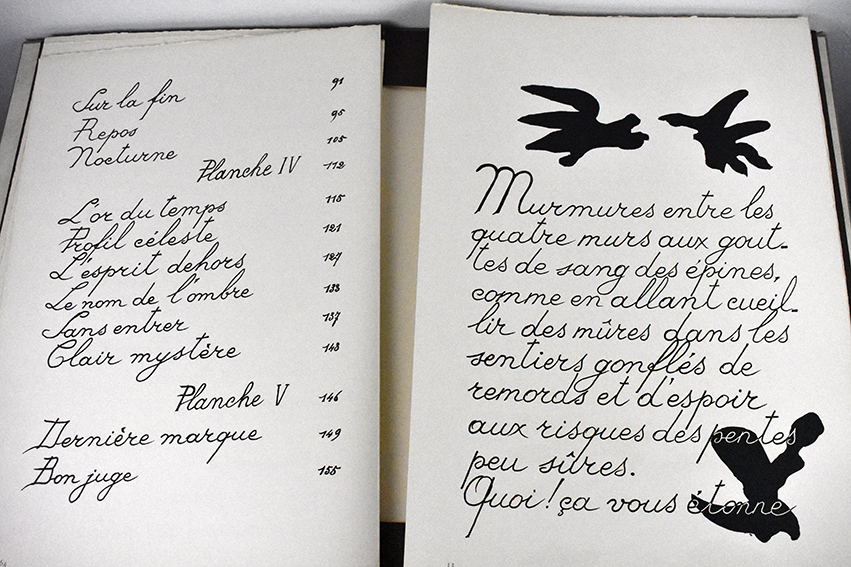 Sur la fin 91
Repos 95
Nocturne 105
Planche IV 112
L'or du temps 115
Profil céleste 121
L'esprit dehors 127
Le nom de l'ombre 133
Sans entrer 137
Clair mystère 143
Planche V 146
Dernière marque 149
Bon juge 155
Murmures entre les
quatre murs aux gout-
tes de sang des épines,
comme en allant cueil-
lir des mûres dans les
sentiers gonflés de
remords et d'espoir
aux risques des pentes
peu sûres.
Quoi! ça vous étonne